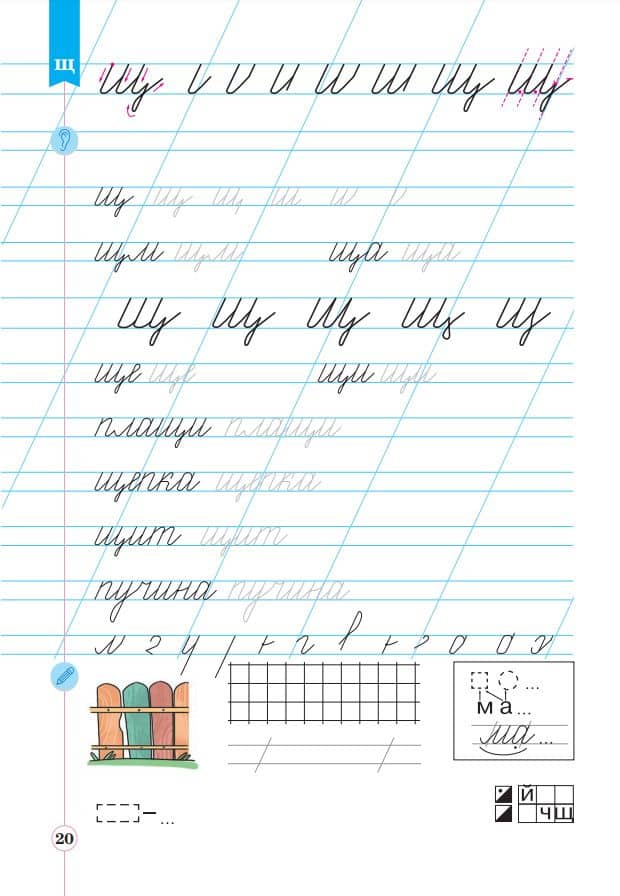 щ
Щ и ш Щ Щ
щ щ щ ш
ща ща
Щ Щ Щ Щ Щ
ще ще щи щи
плащи плащи
щепка щепка
щит щит
пучина пучина
...
м а ...
ма ...
Й
– ...
ЧЩ
20